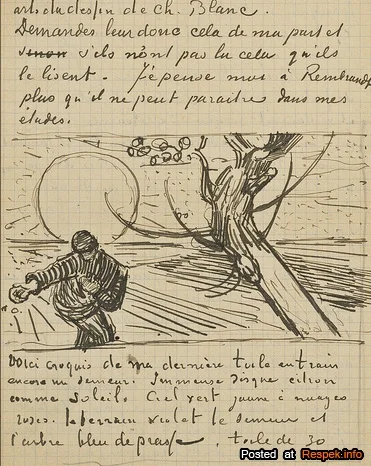 arts du dessin de Ch. Blanc.
Demandes leur donc cela de ma part et
sinon s'ils n'ont pas lu cela qu'ils
le lisent. J'y pense moi à Rembrandt
plus qu'il ne peut paraitre dans mes
études.
Voici croquis de ma dernière toile en train
encore un semeur. Immense disque citron
comme soleil. Ciel vert jaune à nuages
roses. le terrain violet le semeur et
l'arbre bleu de prusse. toile de 30
Posted at Respek.info